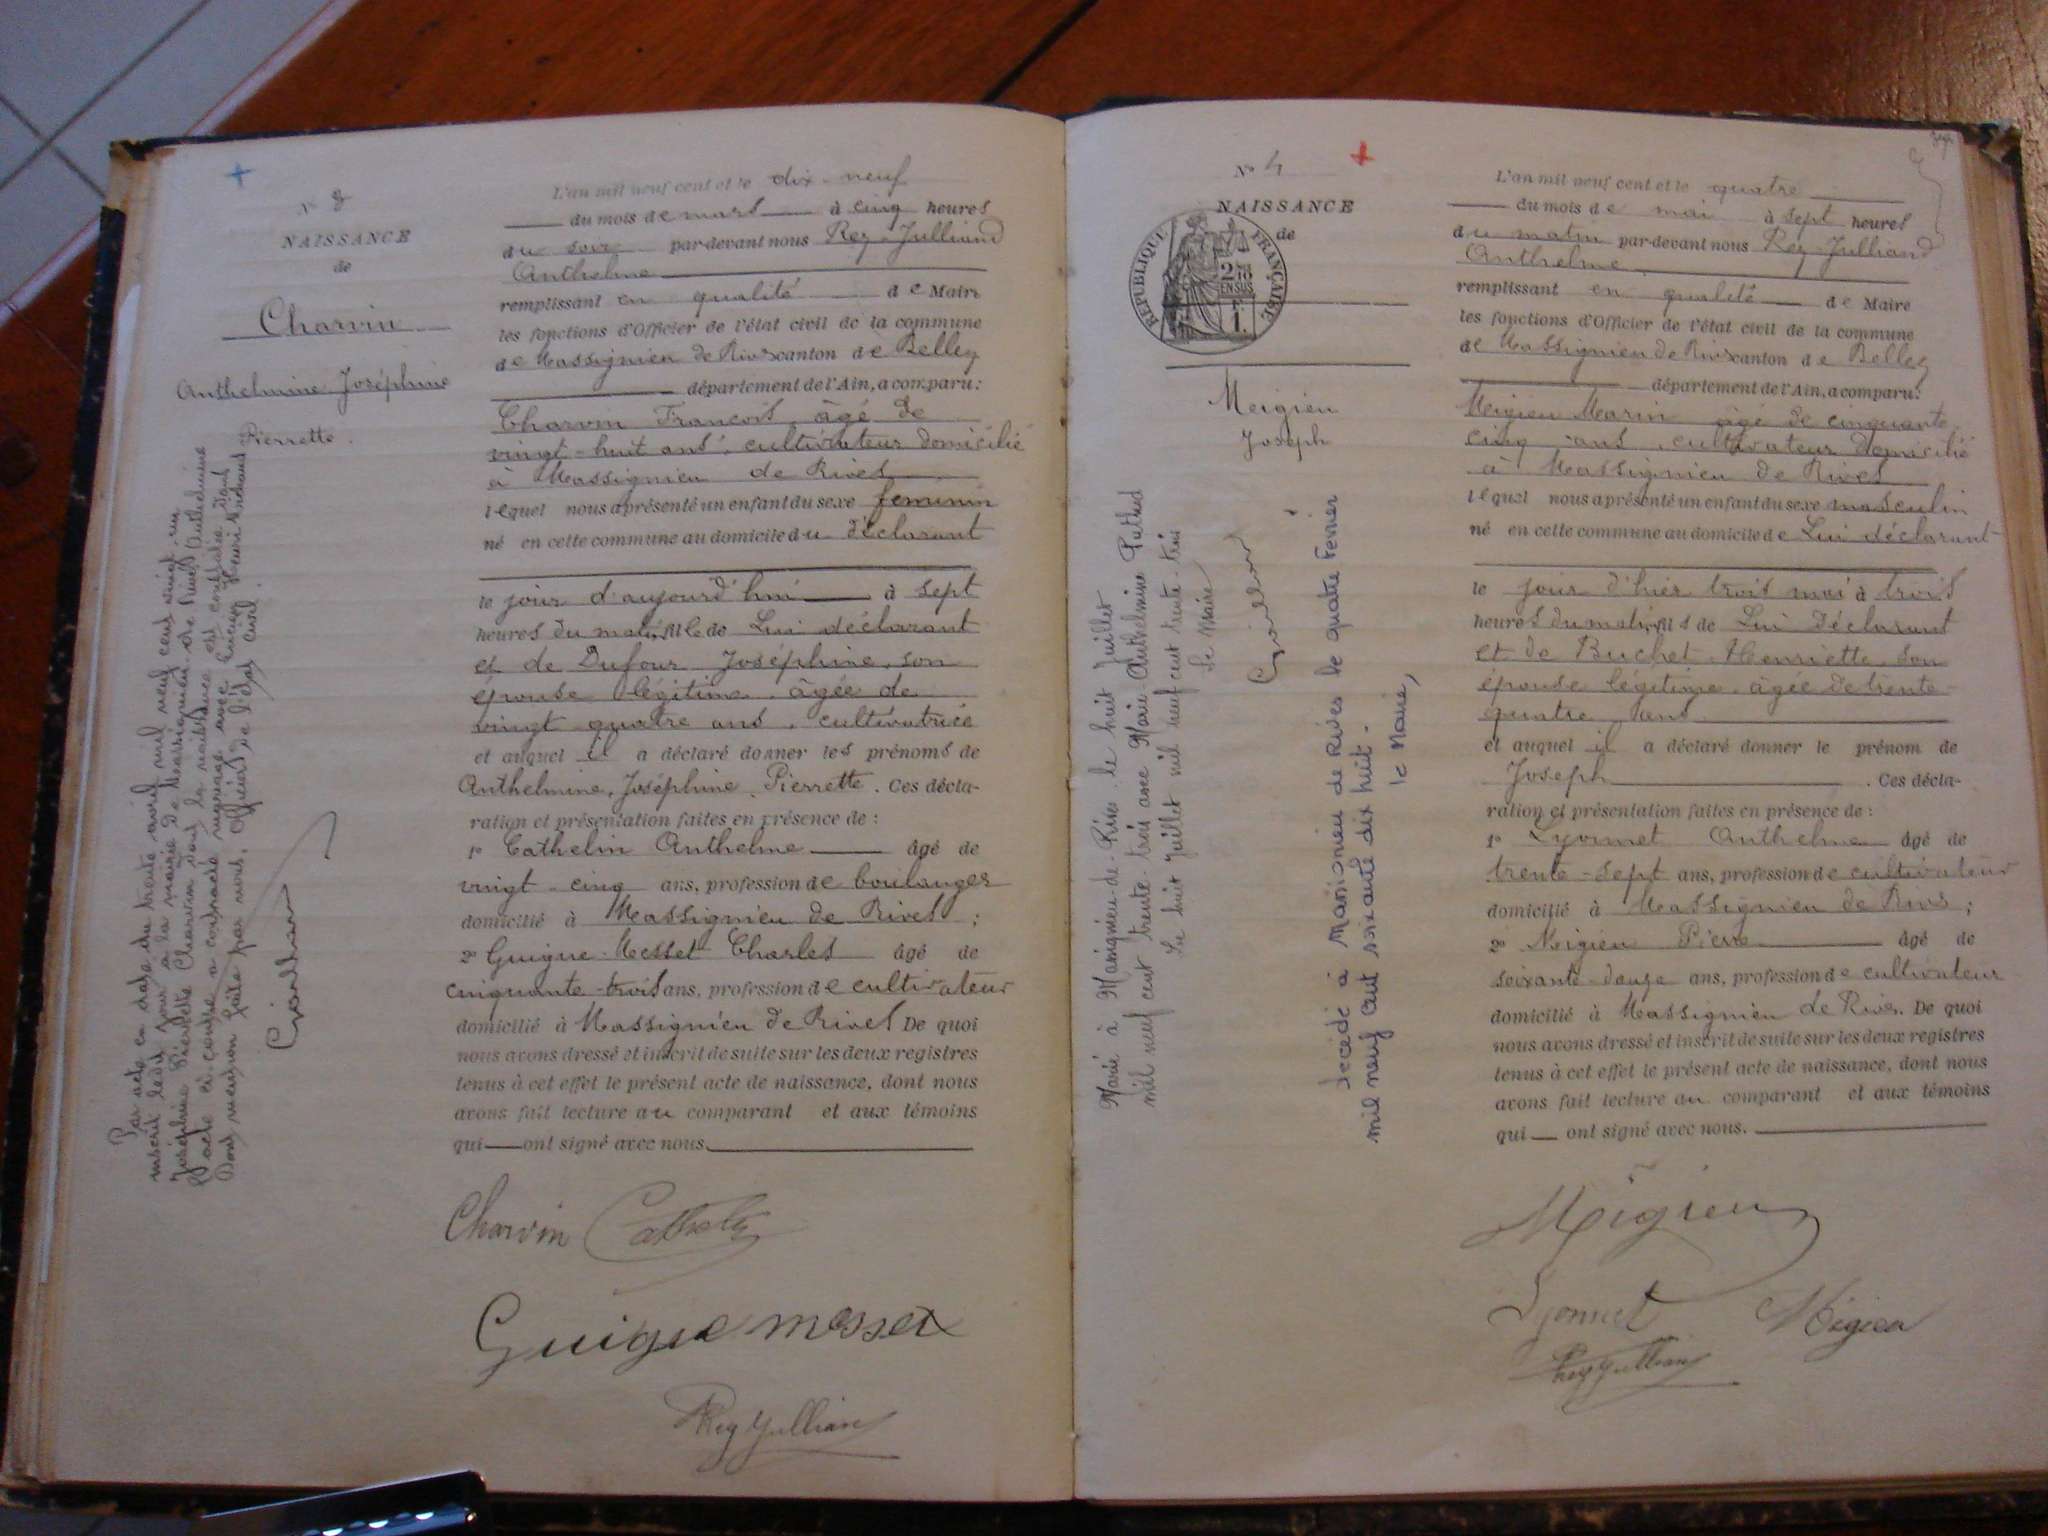 N° 3
NAISSANCE
de
Charvin
Anthelmine Joséphine
Pierrette.
Par acte en date du trente avril mil neuf cent vingt-un
inscrit le dit jour à la mairie de Massignieu-de-Rives Anthelmine
Joséphine Pierrette Charvin dont la naissance est constatée dans
l'acte ci-contre a contracté mariage avec Henri
Dont mention faite par nous, Officier de l'état civil.
L'an mil neuf cent et le dix-neuf
du mois de mars à cinq heures
du soir par-devant nous Rey-Julliand
Anthelme
remplissant en qualité de Maire
les fonctions d'Officier de l'état civil de la commune
de Massignieu de Rives canton de Belley
département de l'Ain, a comparu:
Charvin François âgé de
vingt-huit ans, cultivateur domicilié
à Massignieu de Rives
lequel nous a présenté un enfant du sexe feminin
né en cette commune au domicile du déclarant
le jour d'aujourd'hui à sept
heures du matin, fille de Lui déclarant
et de Dufour Joséphine, son
épouse légitime âgée de
vingt quatre ans, cultivatrice
et auquel il a déclaré donner les prénoms de
Anthelmine, Joséphine, Pierrette. Ces décla-
ration et présentation faites en présence de:
1° Cathelin Anthelme âgé de
vingt-cinq ans, profession de boulanger
domicilié à Massignieu de Rives;
2° Guigue-Messet Charles âgé de
cinquante-trois ans, profession de cultivateur
domicilié à Massignieu de Rives De quoi
nous avons dressé et inscrit de suite sur les deux registres
tenus à cet effet le présent acte de naissance, dont nous
avons fait lecture au comparant et aux témoins
qui ont signé avec nous.
Charvin Cathelin
Guigue messet
Rey Jullian
N° 4
NAISSANCE
de
RÉPUBLIQUE FRANÇAISE
2/10 EN SUS
F. 1.
Meigieu
Joseph
Marié à Massignieu-de-Rives le huit Juillet
mil neuf cent trente-trois avec Marie-Anthelmine Puthod
Le huit Juillet mil neuf cent trente-trois
Le Maire
Décédé à Massignieu de Rives le quatre Février
mil neuf cent soixante dix huit.
Le Maire,
L'an mil neuf cent et le quatre
du mois de mai à sept heures
du matin par-devant nous Rey-Julliand
Anthelme
remplissant en qualité de Maire
les fonctions d'Officier de l'état civil de la commune
de Massignieu de Rives canton de Belley
département de l'Ain, a comparu:
Meigieu Marin âgé de cinquante
cinq ans, cultivateur domicilié
à Massignieu de Rives
lequel nous a présenté un enfant du sexe masculin
né en cette commune au domicile de Lui déclarant
le jour d'hier trois mai à trois
heures du matin, fils de Lui déclarant
et de Buchet Henriette son
épouse légitime âgée de trente-
quatre ans
et auquel il a déclaré donner le prénom de
Joseph. Ces décla-
ration et présentation faites en présence de:
1° Lyonnet Anthelme âgé de
trente-sept ans, profession de cultivateur
domicilié à Massignieu de Rives;
2° Meigieu Pierre âgé de
soixante-douze ans, profession de cultivateur
domicilié à Massignieu de Rives. De quoi
nous avons dressé et inscrit de suite sur les deux registres
tenus à cet effet le présent acte de naissance, dont nous
avons fait lecture au comparant et aux témoins
qui ont signé avec nous.
Migieu
Lyonnet Migieu
Rey Jullian